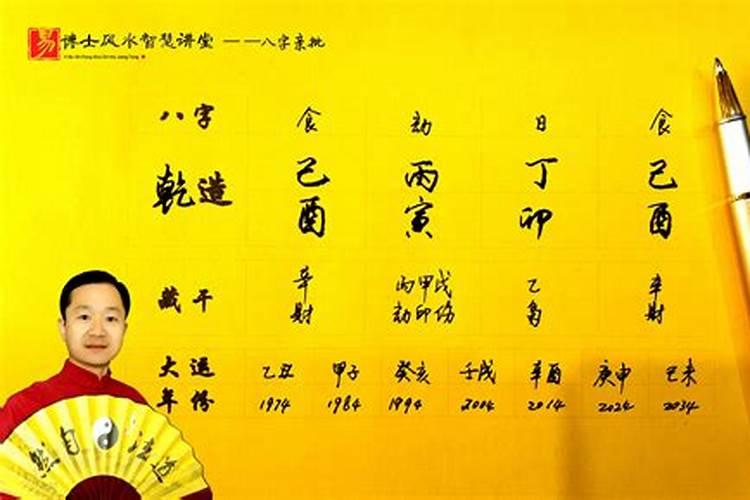 易 谦士风水智慧讲堂 ——八字亲批
八字 食 劫 日 食
乾造 己 丙 丁 己
酉 寅 卯 酉
藏干 辛 丙甲戊 乙 辛
财 劫印伤 枭 财
大运 乙丑 甲子 癸亥 壬戌 辛酉 庚申 己未
年份 1974 1984 1994 2004 2014 2024 2034
然自法道